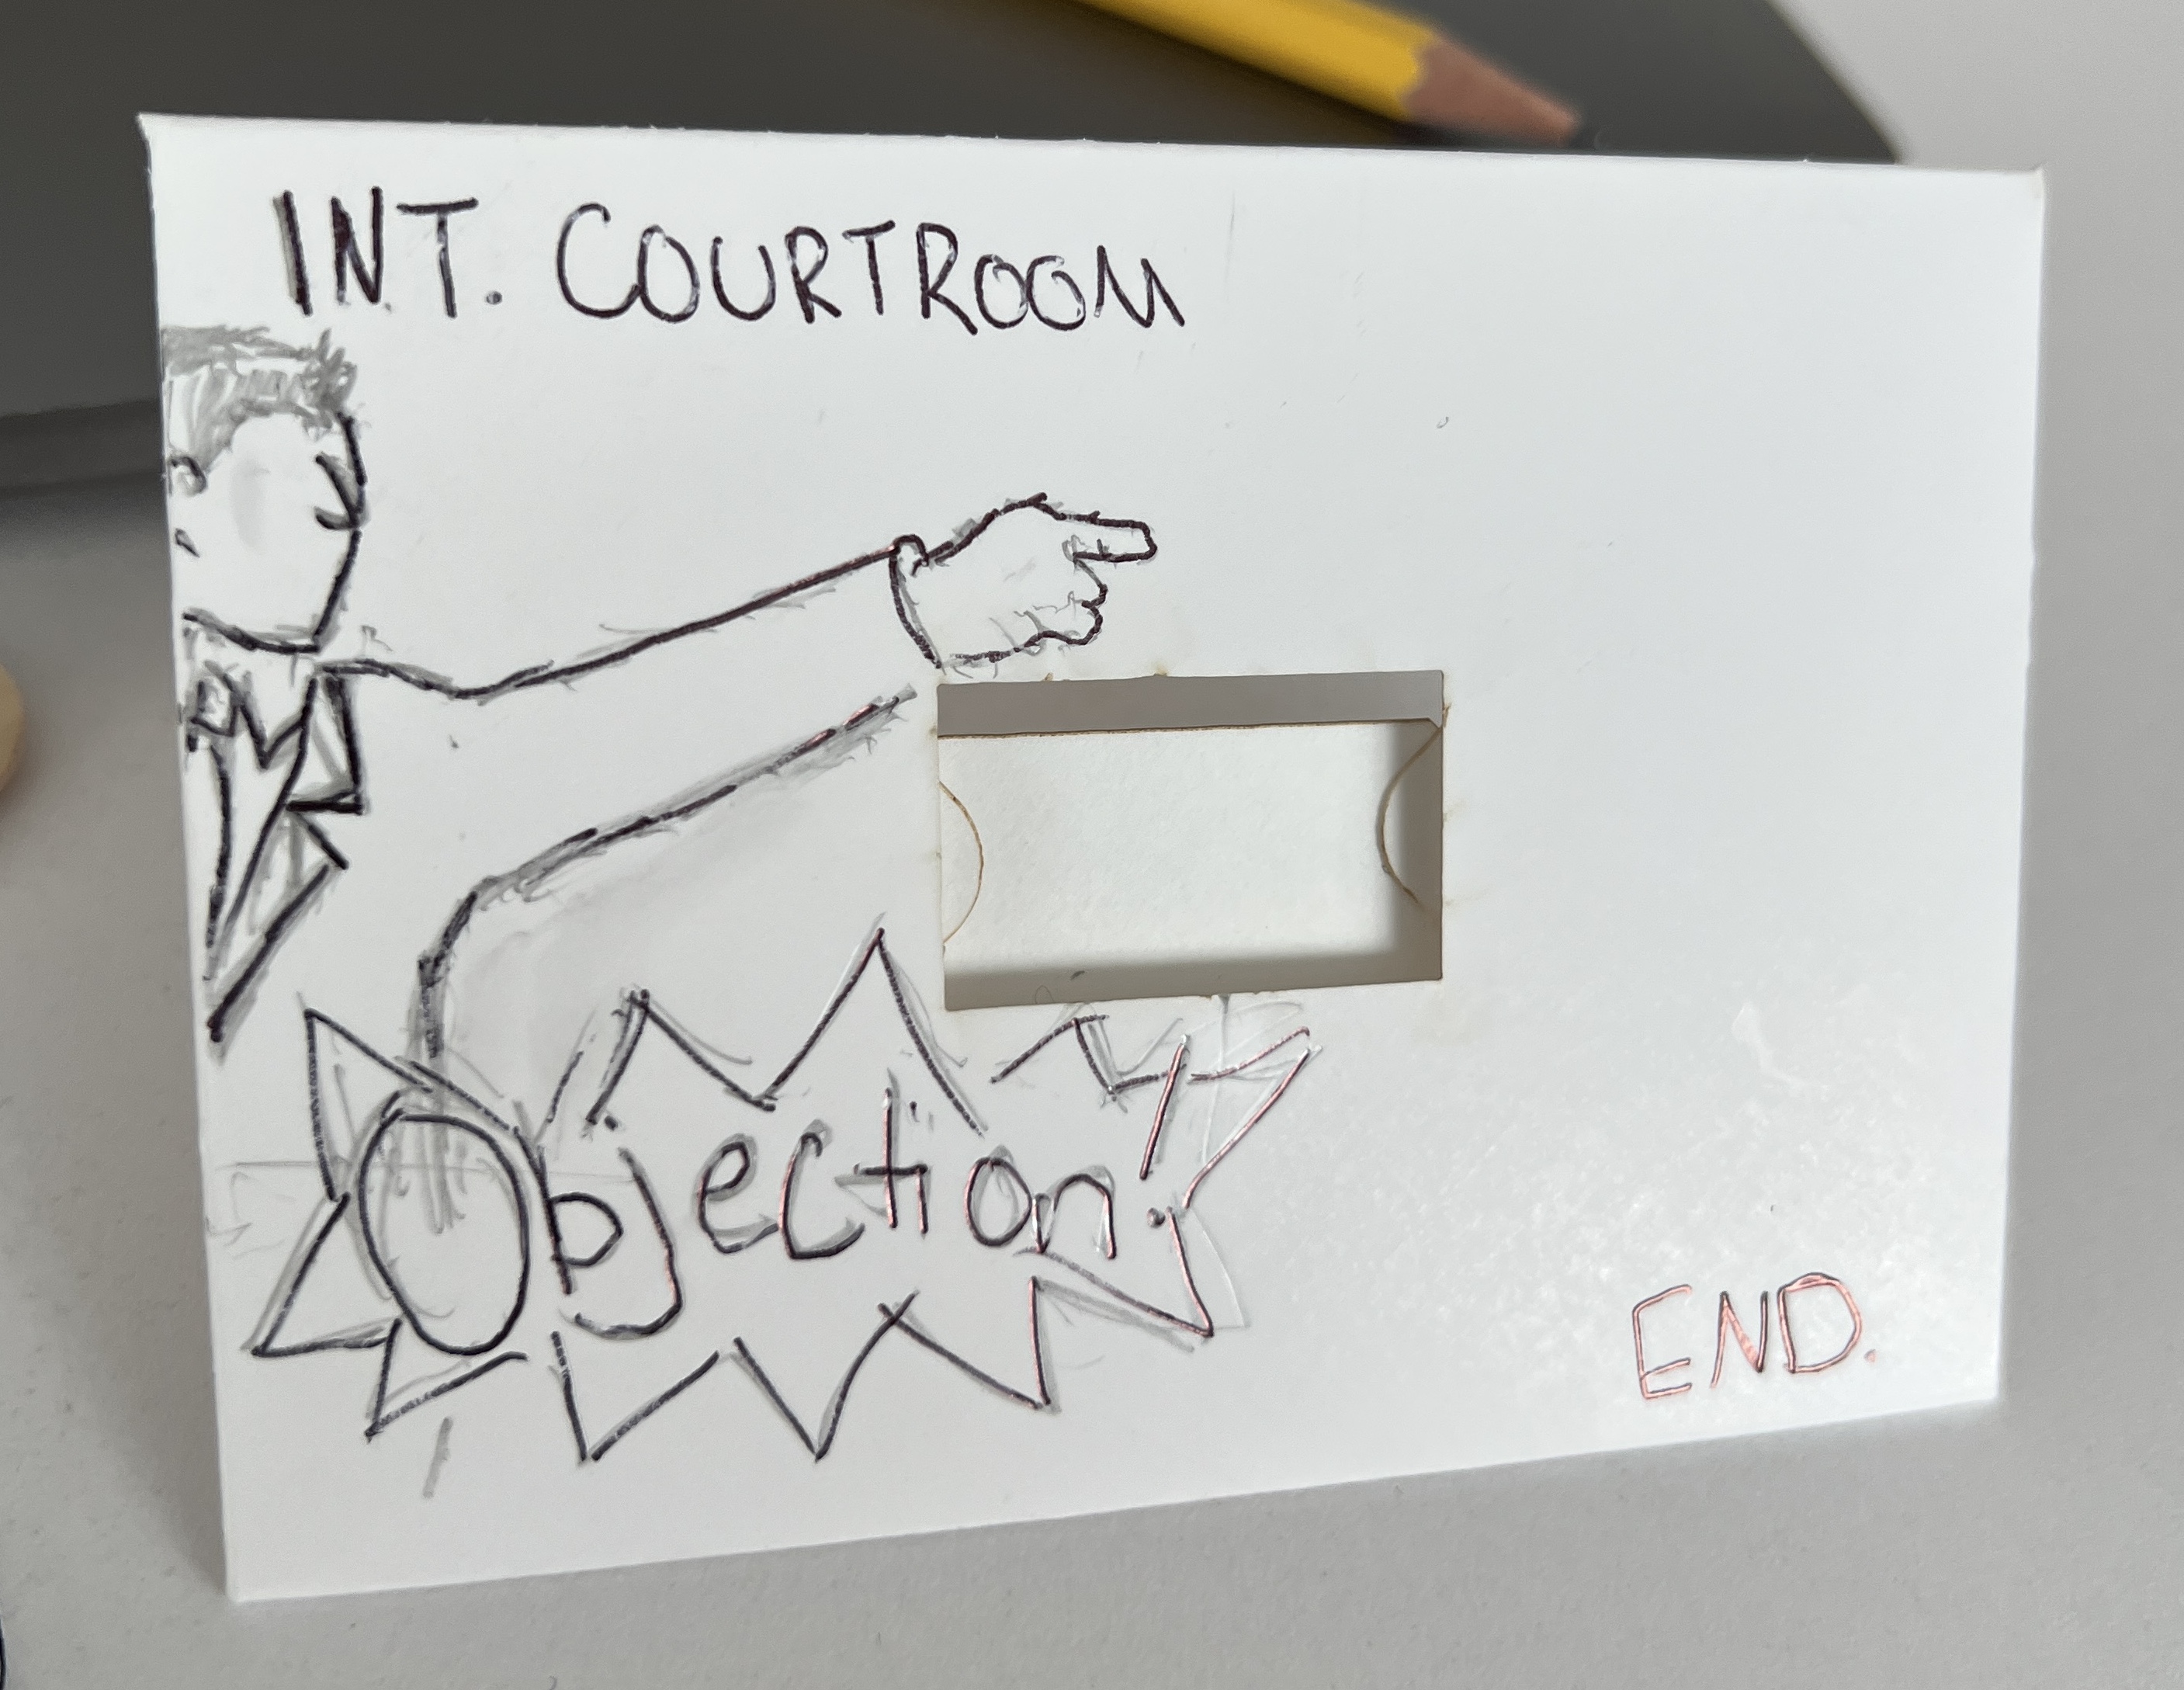 INT. COURTROOM
Objection!
END.